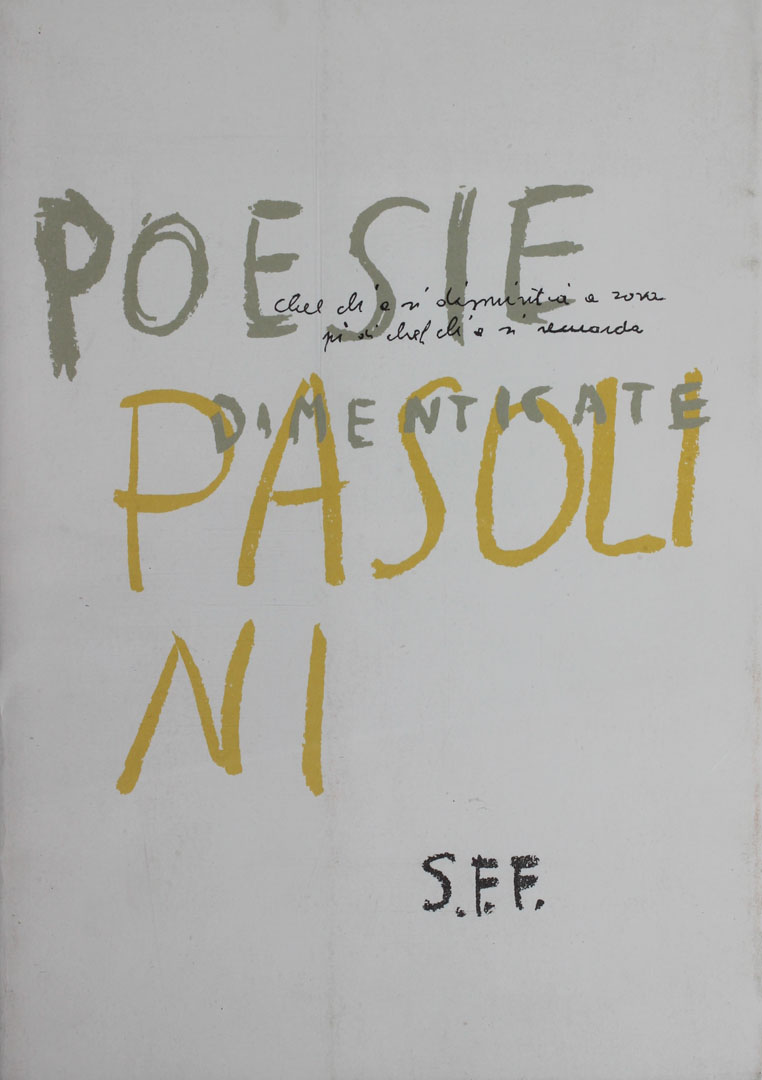 POESIE
chel ch'a si dismintia a zova
pi di chel ch'a si recuarda
DIMENTICATE
PASOLI
NI
S.F.F.